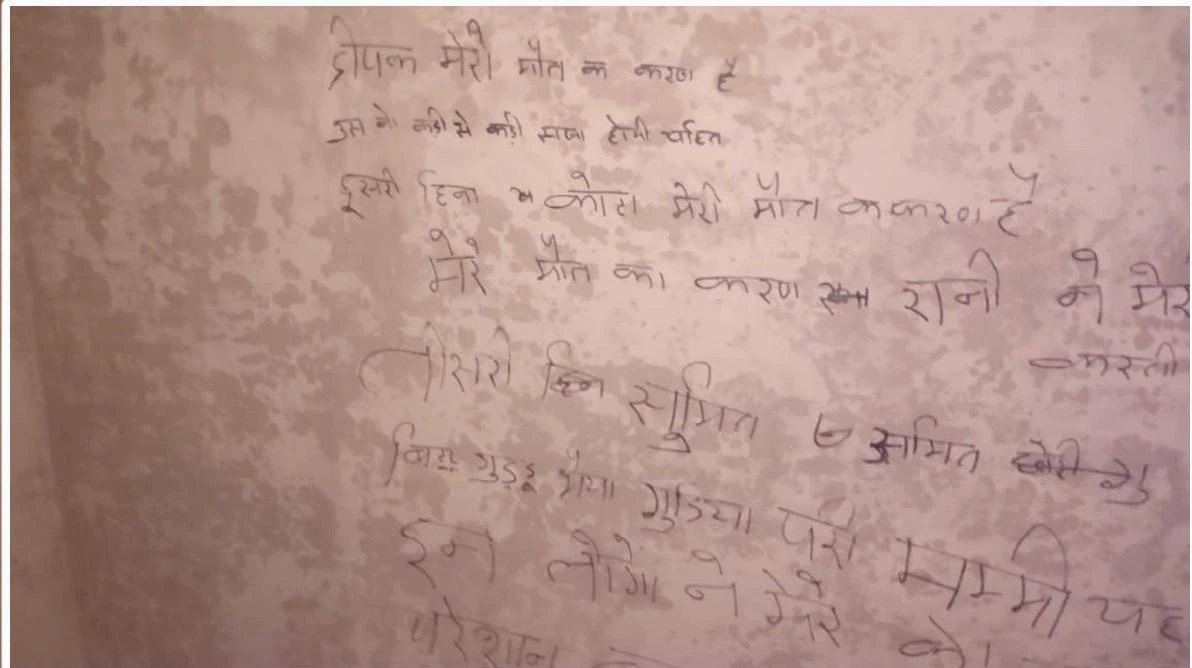 दीपक मेरी मौत क करण है
उस को कडी से कड़ी साजा होनी चहित
दूसरी हिना मेरी मौत क करण है
मेरे मौत का करण रानी ने मेरे
करती
तीसरी सुमित अमित
गुड्डू भैया गुडिया परी मम्मी यह
इन लोगो ने मेरे को
परेशान